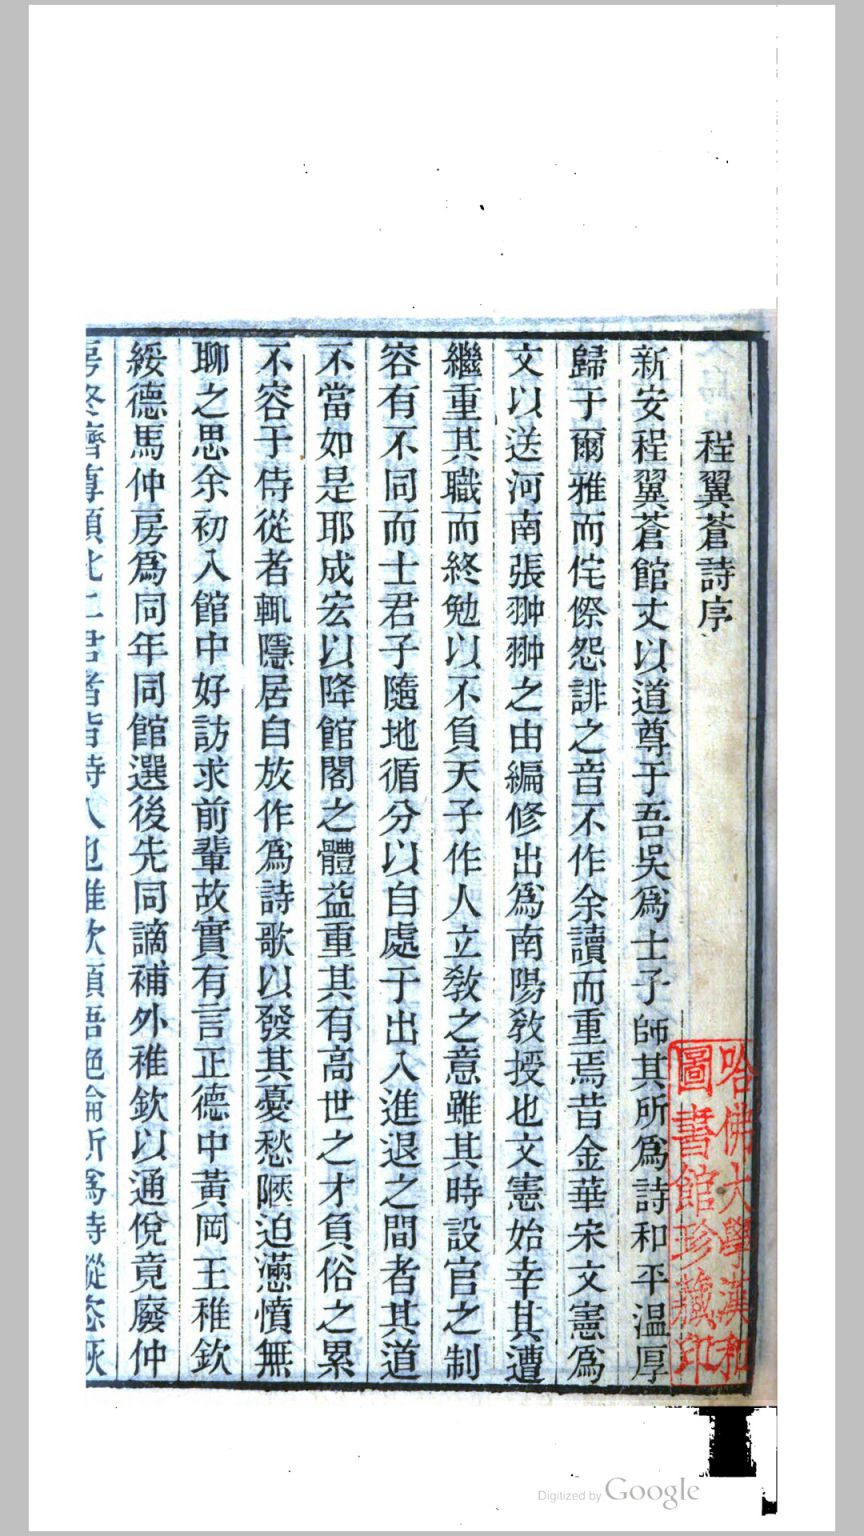 程翼蒼詩序
新安程翼蒼館丈以道尊于吾吳爲士子師其所爲詩和平溫厚
歸于爾雅而侘傺怨誹之音不作余讀而重焉昔金華宋文憲爲
文以送河南張翀翀之由編修出爲南陽敎授也文憲始幸其遭
繼重其職而終勉以不負天子作人立敎之意雖其時設官之制
容有不同而士君子隨地循分以自處于出入進退之間者其道
不當如是耶成宏以降館閣之體益重其有高世之才負俗之累
不容于侍從者輒隱居自放作爲詩歌以發其憂愁陿迫懣憤無
聊之思余初入館中好訪求前輩故實有言正德中黃岡王稚欽
綏德馬仲房爲同年同館選後先同謫補外稚欽以通侻竟廢仲
房終躋尊顯此二君者皆詩人也稚欽穎悟絶倫所爲詩縱恣
哈佛大學漢和
圖書館珍藏印
Digitized by Google